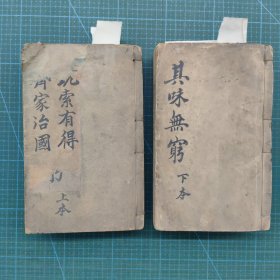 玩索有得
齊家治國
上本
其味無窮
下本